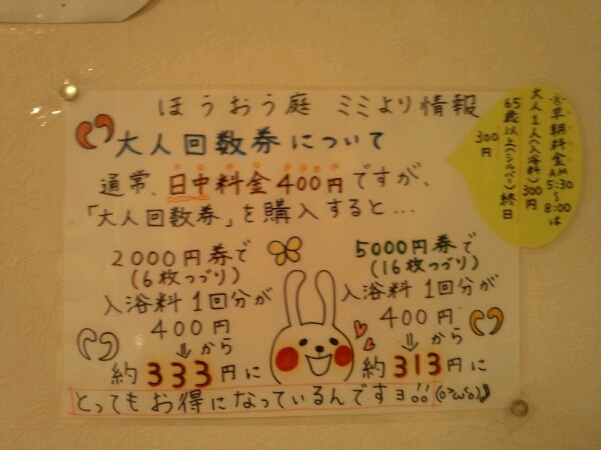 ほうおう庭 ミミより情報
大人回数券について
通常、日中料金400円ですが、
「大人回数券」を購入すると…
2000円券で
(6枚つづり)
入浴料 1回分が
400円
⇓から
約333円に
5000円券で
(16枚つづり)
入浴料 1回分が
400円
⇓から
約313円に
とってもお得になっているんですョ!!(o^ω^o)
※早朝料金AM5:30~8:00は
大人1人(入浴料)300円
65歳以上(シルバー)終日
300円